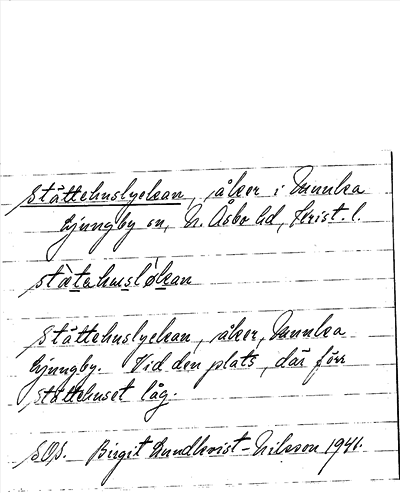 Stättehuslyckan, åker i Munka
Ljungby sn, N. Åsbo hd, Krist. l.
stætahusløkan
Stättehuslyckan, åker, Munka
Ljungby. Vid den plats, där förr
Stättehuset låg.
Birgit Lundkvist-Nilsson 1941.